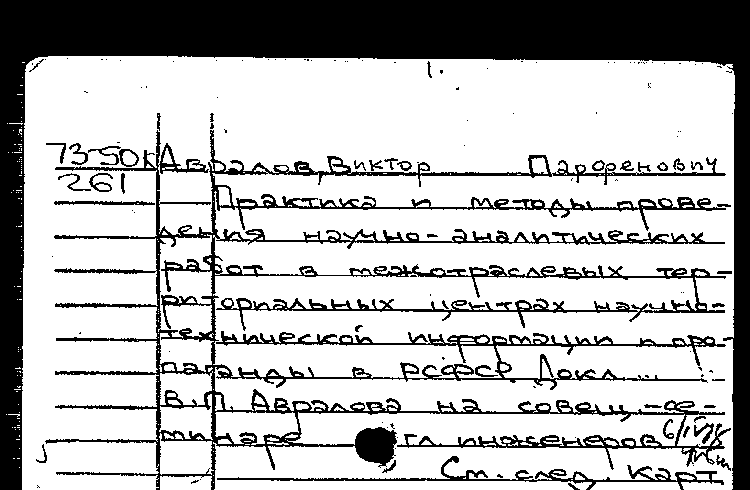 1.
73-50к Авралов, Виктор Парфенович
261
Практика и методы прове-
дения научно-аналитических
работ в межотраслевых тер-
риториальных центрах научно-
технической информации и про-
паганды в РСФСР. Докл...
В.П. Авралова на совещ.-се-
минаре гл. инженеров
См. след. карт